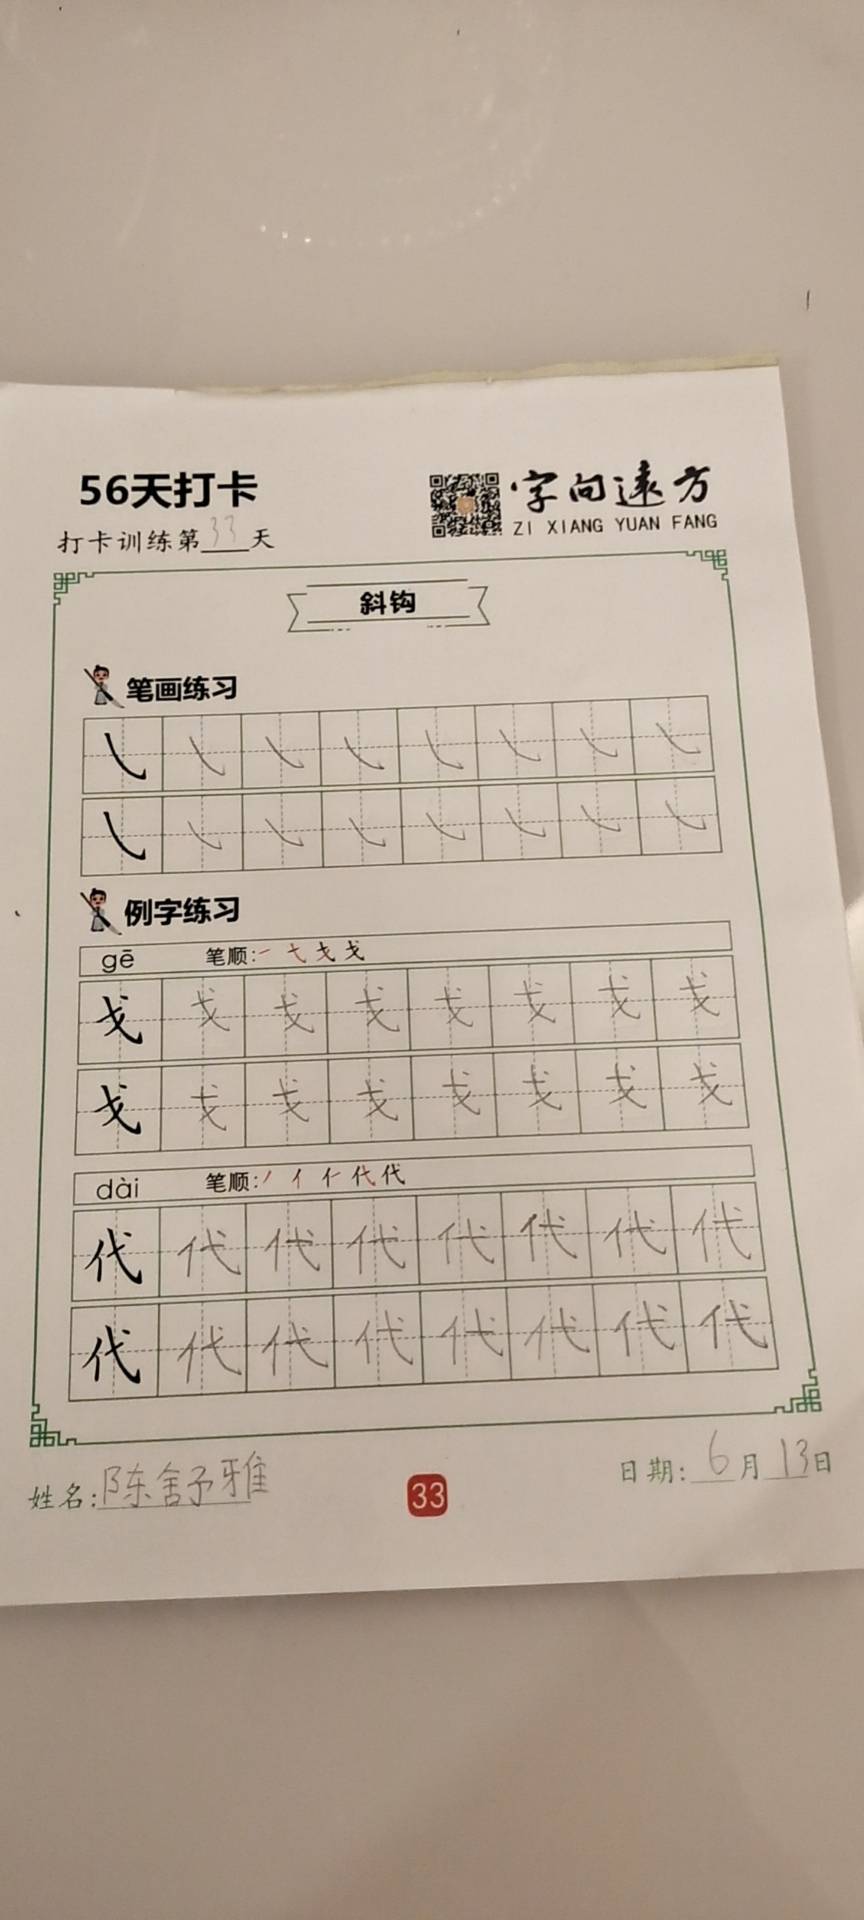 56天打卡
字向远方
ZI XIANG YUAN FANG
打卡训练第33天
斜钩
笔画练习
㇂ ㇂ ㇂ ㇂ ㇂ ㇂ ㇂ ㇂
㇂ ㇂ ㇂ ㇂ ㇂ ㇂ ㇂ ㇂
例字练习
gē 笔顺:一 弋 戈 戈
戈 戈 戈 戈 戈 戈 戈 戈
戈 戈 戈 戈 戈 戈 戈 戈
dài 笔顺:丿 亻 仁 代 代
代 代 代 代 代 代 代 代
代 代 代 代 代 代 代 代
姓名:陈舒雅
33
日期:6月13日